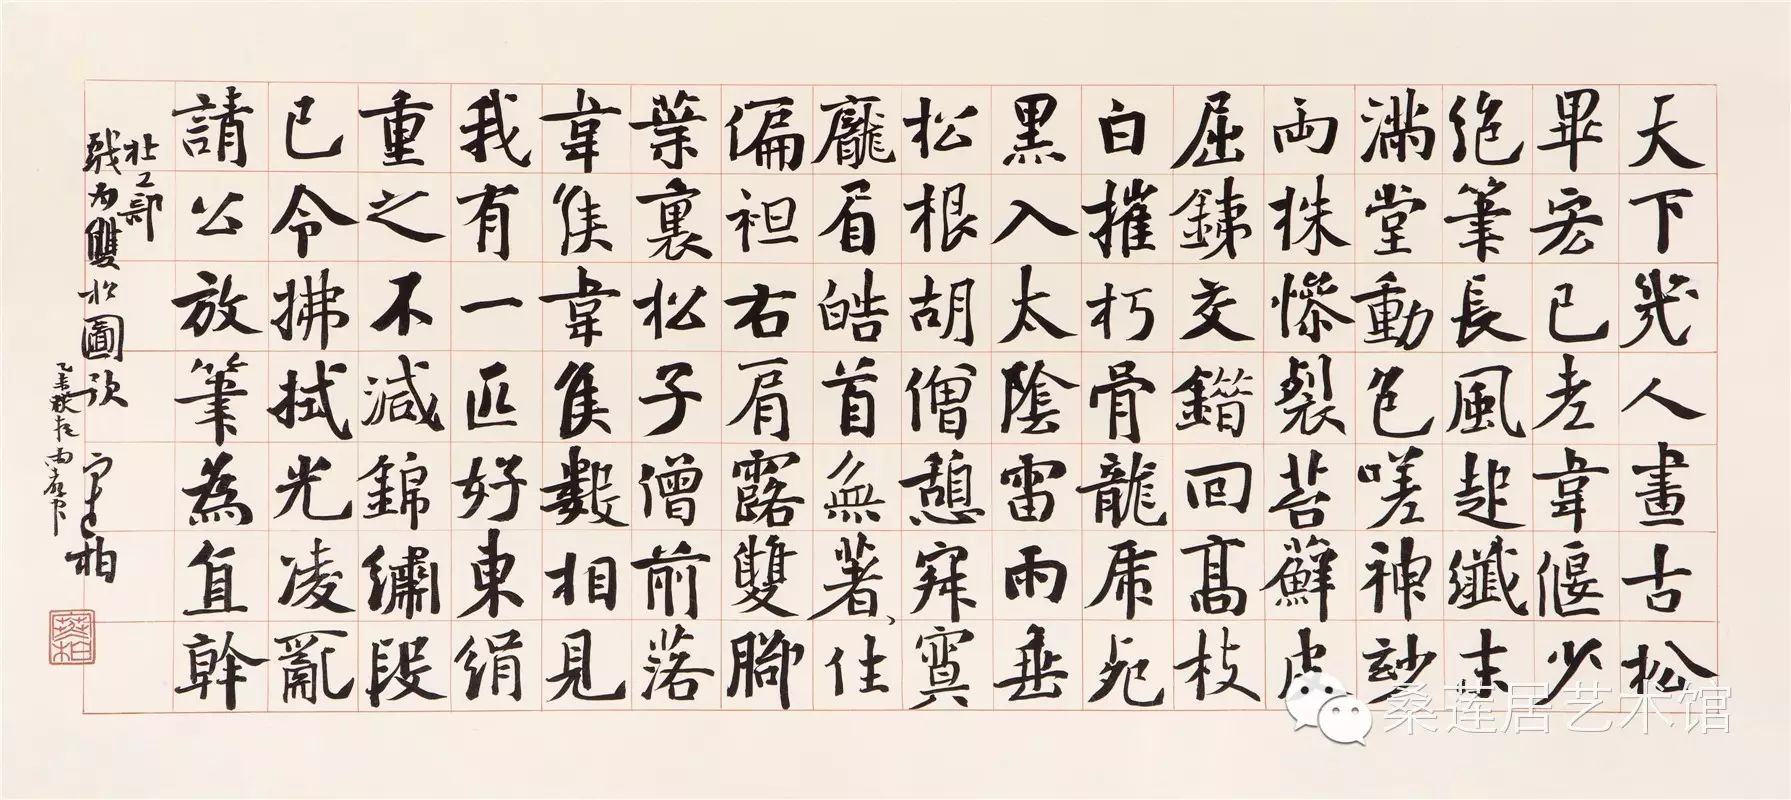 天下幾人畫古松
畢宏已老韋偃少
絕筆長風起纖末
滿堂動色嗟神玅
兩株慘裂苔蘚皮
屈銕交錯回高枝
白摧朽骨龍虎死
黑入太陰雷雨垂
松根胡僧憩寂寞
龐眉皓首無著住
偏袒右肩露雙腳
葉裏松子僧前落
韋侯韋侯數相見
我有一匹好東絹
重之不減錦繡段
已令拂拭光凌亂
請公放筆為直幹
杜工部
戲為雙松圖歌
乙未秋於南
柏
桑莲居艺术馆